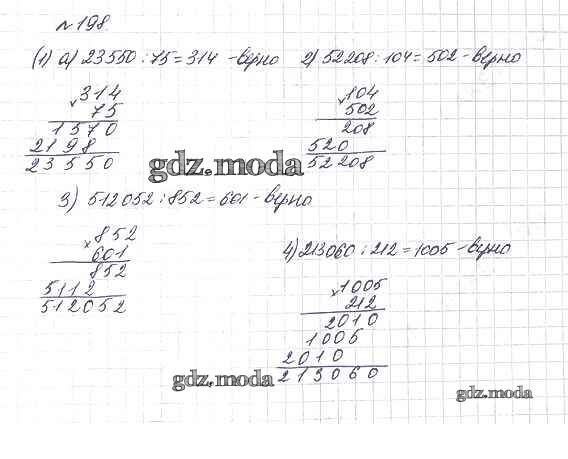 №198.
(1) а) 23550:75=314 -верно
× 314
75
1570
2198
23550
2) 52208:104=502 -верно
× 104
502
208
520
52208
gdz.moda
3) 512052:852=601 -верно
× 852
601
852
5112
512052
4) 213060:212=1005 -верно
× 1005
212
2010
1005
2010
213060
gdz.moda
gdz.moda